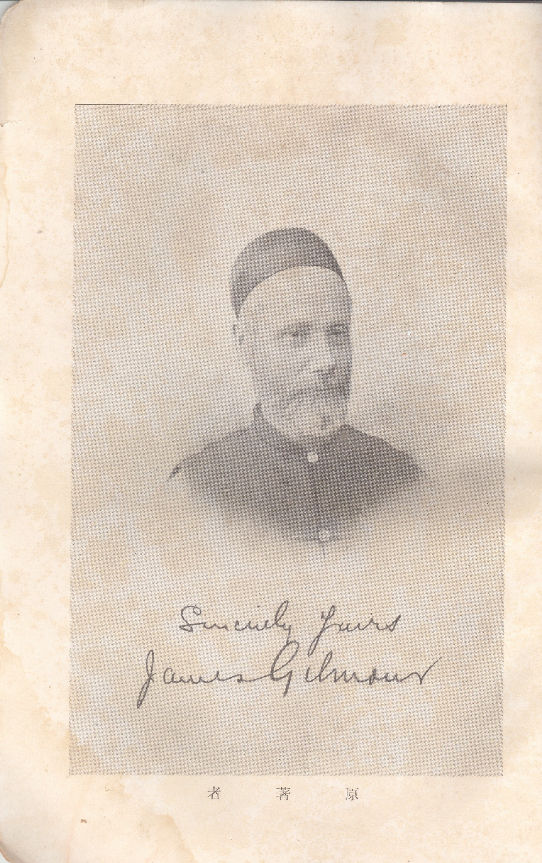 Sincerely yours
James Gilmour
原著者